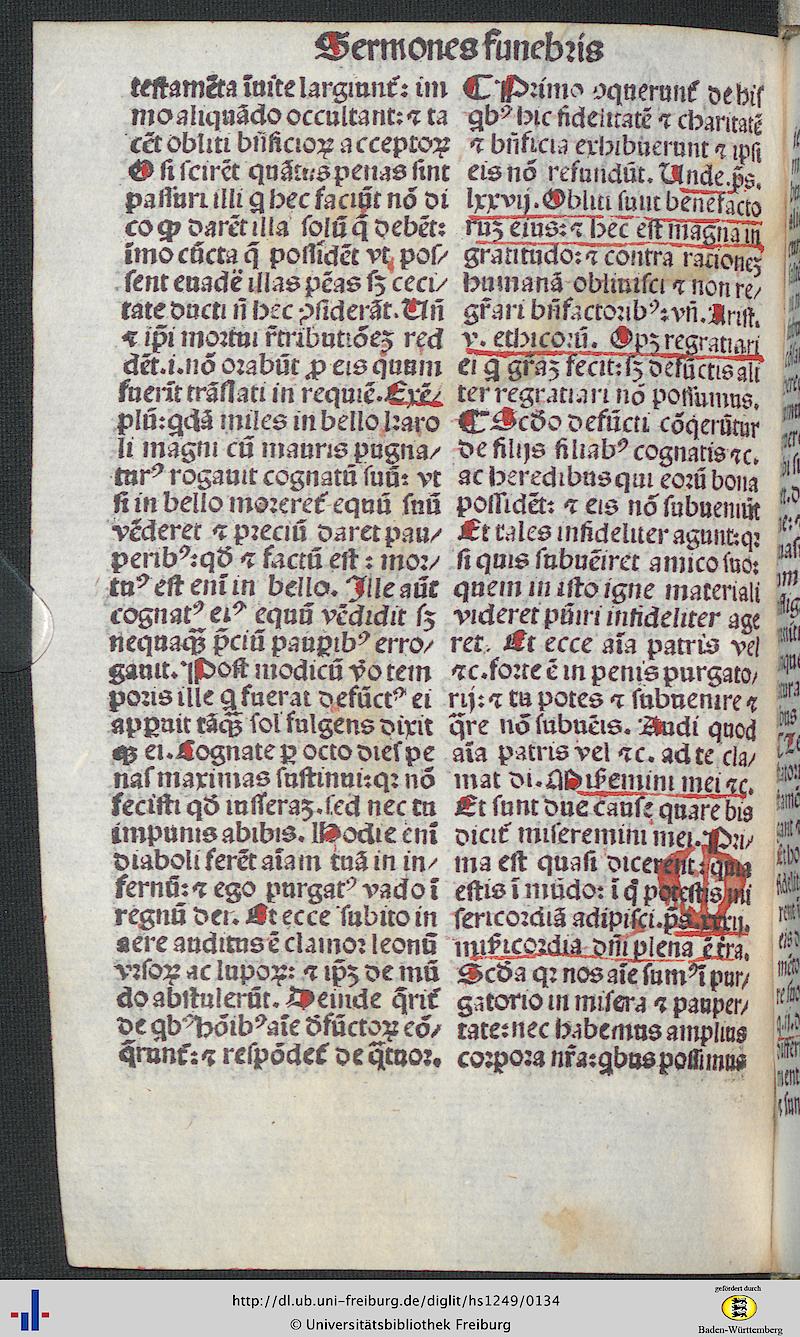 Sermones funebris
testamēta īuite largiunt᷑: im
mo aliquādo occultant: ⁊ ta
cēt obliti bn̄ficioꝝ acceptoꝝ
O si scirēt quātas penas sint
passuri illi q̇ hec faciūt nō di
co ꝙ darēt illa solū q̄ debēt:
īmo cūcta q̄ possidēt vt pos/
sent euadē illas pēas sꝫ ceci/
tate ducti ñ hec ꝯsiderāt. Uñ
⁊ ip̄i mortui r̄tributiōeꝫ red
dēt.i.nō orabūt ꝓ eis quum
fuerīt trāslati in requiē. Exē/
plū: qdā miles in bello karo
li magni cū mauris pugna/
turꝰ rogauit cognatū suū: vt
si in bello moreret᷑ equū suū
vēderet ⁊ preciū daret pau/
peribꝰ: qd̄ ⁊ factū est: mor/
tuꝰ est enī in bello. Ille aūt
cognatꝰ eiꝰ equū vēdidit sꝫ
nequaꝙ̄ p̄ciū pauꝑibꝰ erro/
gauit. Post modicū v̄o tem
poris ille q̇ fuerat defūctꝰ ei
apparuit tāꝙ̄ sol fulgens dixit
qꝫ ei. Cognate ꝑ octo dies pe
nas maximas sustinui: qꝛ nō
fecisti qd̄ iusseraꝫ. sed nec tu
impunis abibis. Hodie enī
diaboli ferēt aīam tuā in in/
fernū: ⁊ ego purgatꝰ vado ī
regnū dei. Et ecce subito in
aere auditus ē clamor leonū
vrsoꝝ ac lupoꝝ: ⁊ ip̄ꝫ de mū
do abstulerūt. Deinde q̄rit᷑
de qbꝰ hōibꝰ aīe d̄fūctoꝝ cō/
q̄runt᷑: ⁊ respōdet᷑ de q̄tuor.
¶ Primo ꝯquerunt᷑ de his
qbꝰ hic fidelitatē ⁊ charitatē
⁊ bn̄ficia exhibuerunt ⁊ ipsi
eis nō refundūt. Unde.ps.
lxxvij. Obliti sunt benefacto
ruꝫ eius: ⁊ hec est magna in
gratitudo: ⁊ contra rationeꝫ
humanā obliuisci ⁊ non re/
gr̄ari bn̄factoribꝰ: vñ. Arist.
v. ethicorū. Opꝫ regratiari
ei q̇ gr̄aꝫ fecit: sꝫ defūctis ali
ter regratiari nō possumus.
¶ Scd̄o defūcti cōqerūtur
de filijs filiabꝰ cognatis ⁊c.
ac heredibus qui eorū bona
possidēt: ⁊ eis nō subueniūt
Et tales infideliter agunt: qꝛ
si quis subuēiret amico suo:
quem in isto igne materiali
videret pūiri infideliter age
ret. Et ecce aīa patris vel
⁊c. forte ē in penis purgato/
rij: ⁊ tu potes ⁊ subuenire ⁊
q̄re nō subuēis. Audi quod
aīa patris vel ⁊c. ad te cla/
mat di. Misemini mei ⁊c.
Et sunt due cause quare bis
dicit᷑ miseremini mei. Pri/
ma est quasi dicerent: quia
estis ī mūdo: ī q̄ potestis mi
sericordiā adipisci. ps. xxxij.
mi̅sericordia dn̄i plena ē tr̄a.
Scd̄a qꝛ nos aīe sumꝰ ī pur/
gatorio in misera ⁊ pauper/
tate: nec habemus amplius
corpora nr̄a: qbus possimus
http://dl.ub.uni-freiburg.de/diglit/hs1249/0134
© Universitätsbibliothek Freiburg
gefördert durch
Baden-Württemberg